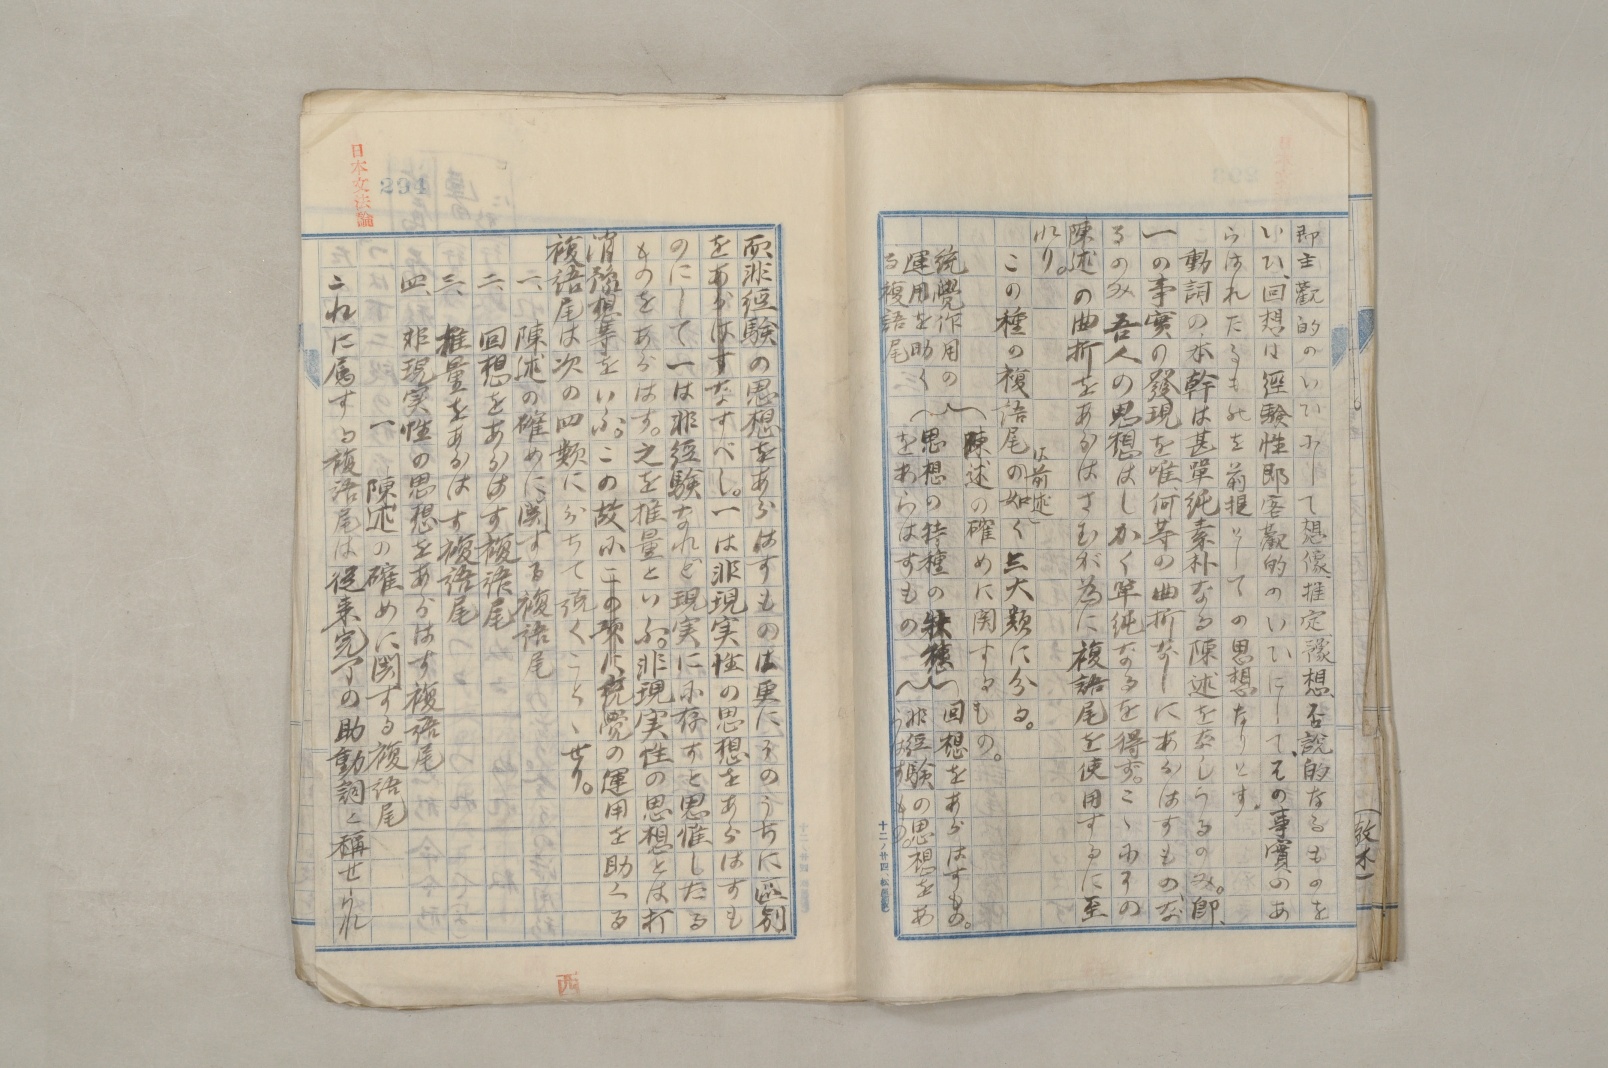 即主観的のいひにして想像、推定、豫想、否説的なるものを
いひ、回想は経験性即客観的のいひにして、その事實のあ
らはれたるものを前提としての思想なりとす。
動詞の本幹は甚單純素朴なる陳述をなしうるのみ。即、
一の事実の發現を唯何等の曲折なしにあらはすものな
るのみ吾人の思想はしかく單純なるを得ず。こゝにその
陳述の曲折をあらはさむが為に複語尾を使用するに至
れり。
(は前述)
この種の複語尾の如く三大類に分る。
統覺作用の
運用を助く
る複語尾
陳述の確めに関するもの。
思想の特種の状態
をあらはすもの
回想をあらはすもの。
非経験の思想をあ
らはすもの。
(啓本)
十二ノ廿四
日本文法論
294
而非経験の思想をあらはすものは更にそのうちに区別
をあらはすなすべし。一は非現実性の思想をあらはすも
のにして一は非経験なれど現実に存すと思惟したる
ものをあらはす。之を推量といふ。非現実性の思想とは打
消豫想等をいふ。この故にこの統覺の運用を助くる
複語尾は次の四類に分ちて説くことゝせり。
一、陳述の確めに関する複語尾
二、回想をあらはす複語尾
三、推量をあらはす複語尾
四、非現実性の思想をあらはす複語尾
一、陳述の確めに関する複語尾
これに属する複語尾は従来完了の助動詞と稱せられ
西